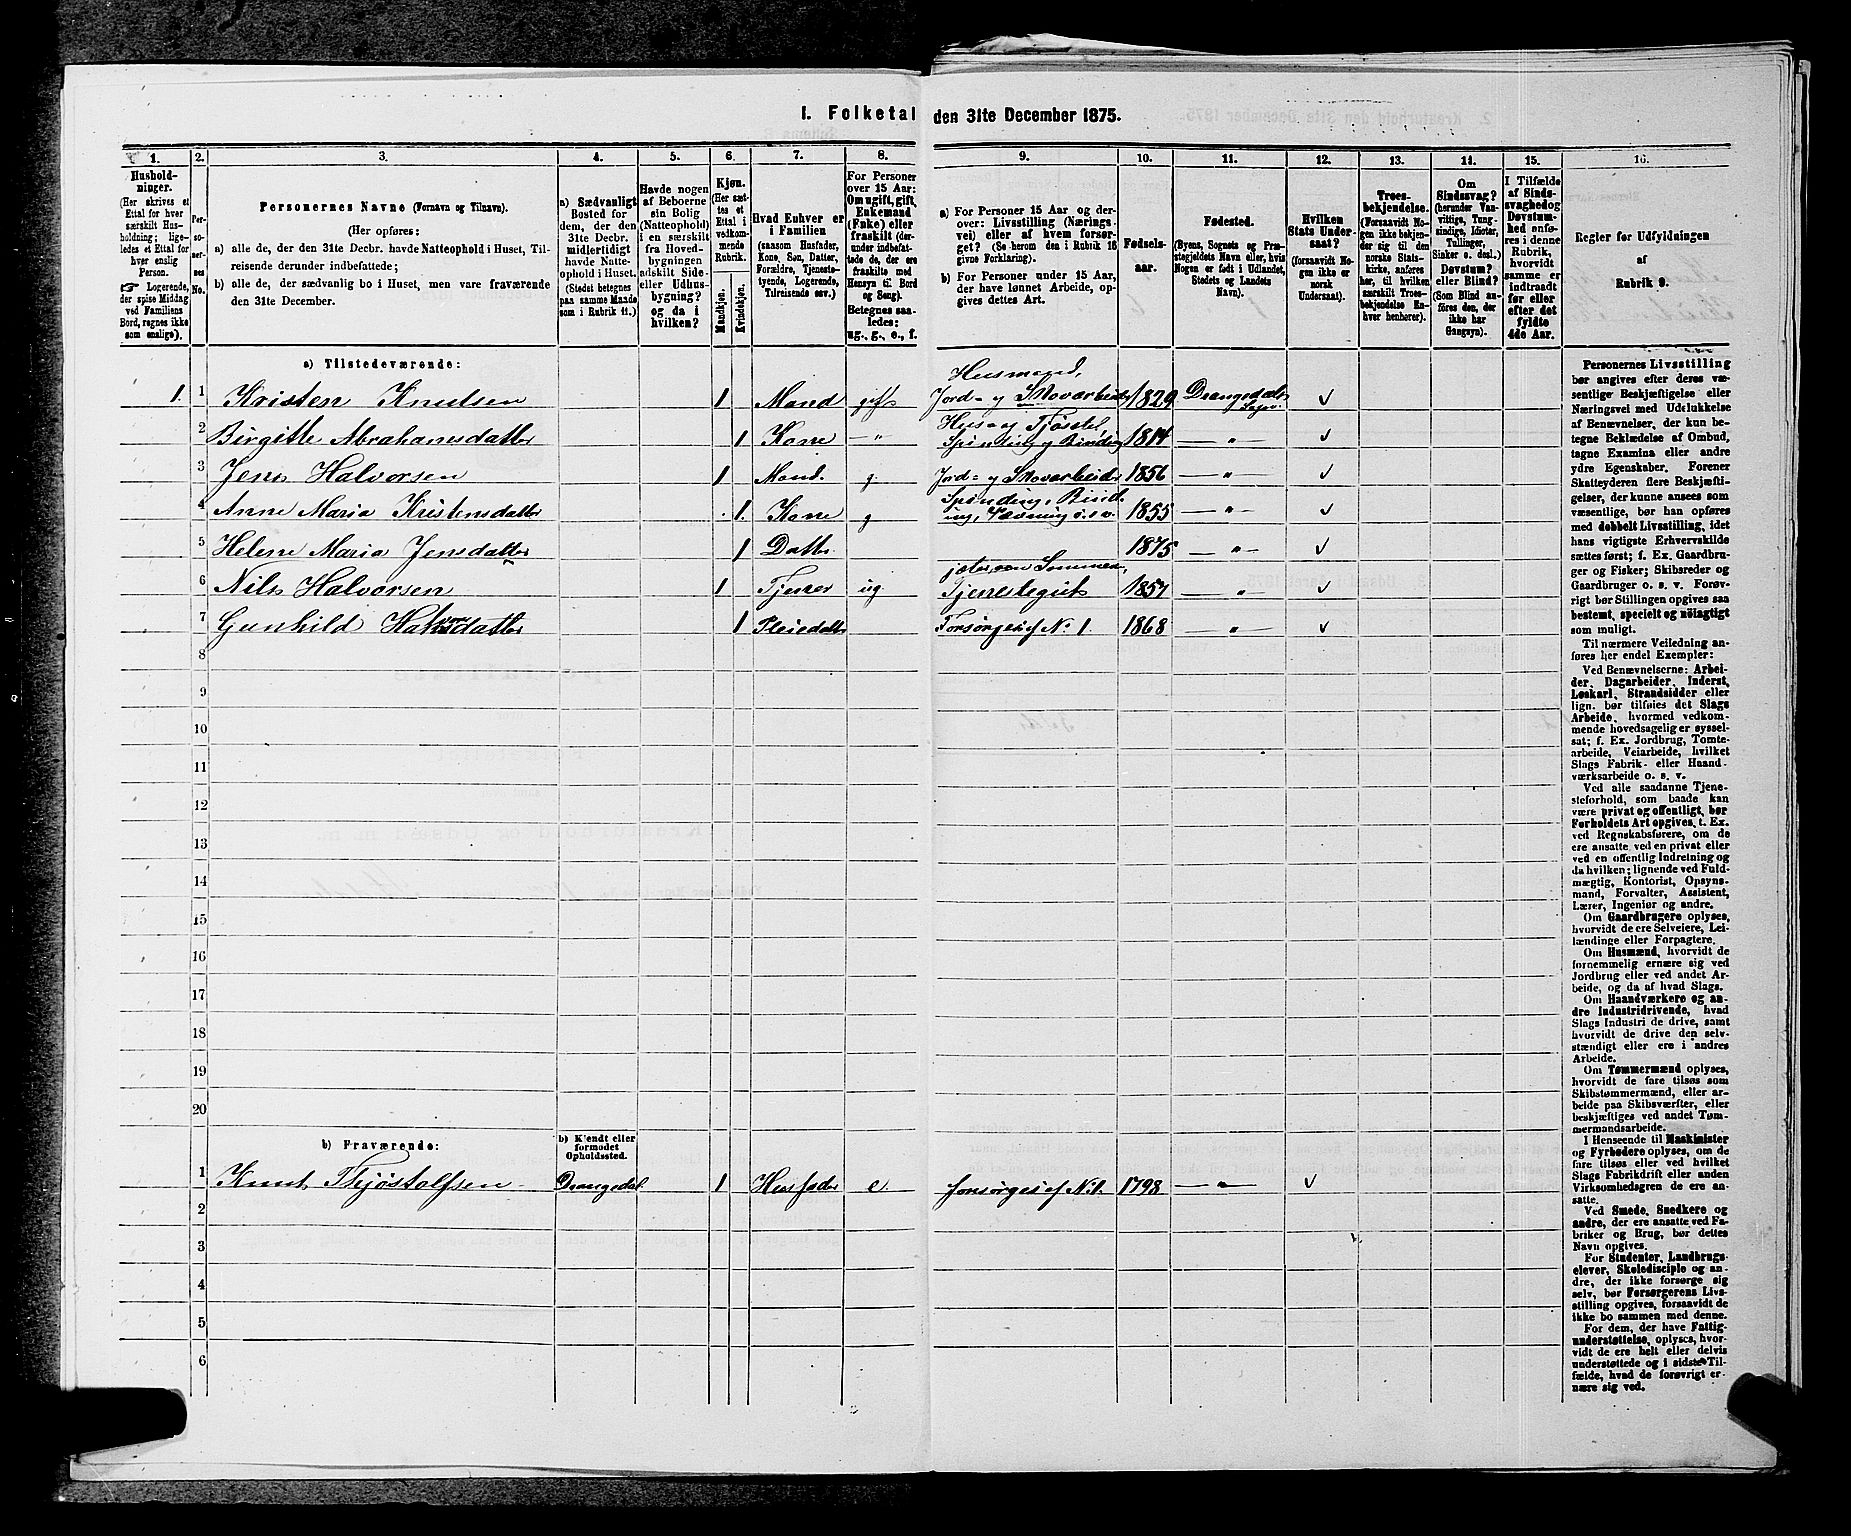 I. Folketal den 31te December 1875.
1. 2. 3. 4. 5. 6. 7. 8. 9. 10. 11. 12. 13. 14. 15. 16.
Hushold-
ninger.
(Her skrives et
Ettal for hver
særskilt Hus-
holdning; lige-
ledes et Ettal for
hver enslig
Person.
☞ Logerende,
der spise Middag
ved Familiens
Bord, regnes ikke
som enslige).
Per-
so-
ner-
nes
No.
Personernes Navne (Fornavn og Tilnavn).
(Her opføres:
a) alle de, der den 31te Decbr. havde Natteophold i Huset, Til-
reisende derunder indbefattede;
b) alle de, der sædvanlig bo i Huset, men vare fraværende
den 31te December.
a) Sædvanligt
Bosted for
dem, der den
31te Decbr.
midlertidigt
havde Natte-
ophold i Huset.
(Stedet betegnes
paa samme Maade
som i Rubrik 11.)
Havde nogen
af Beboerne
sin Bolig
(Natteophold)
i en særskilt
fra Hoved-
bygningen
adskilt Side-
eller Udhus-
bygning?
og da i
hvilken?
Kjøn.
(Her sæt-
tes et
Ettal i
vedkom-
mende
Rubrik.
Mandkjøn.
Kvindekjøn.
Hvad Enhver er
i Familien
(saasom Husfader,
Kone, Søn, Datter,
Forældre, Tjeneste-
tyende, Logerende,
Tilreisende osv.)
For Personer
over 15 Aar:
Om ugift, gift,
Enkemand
(Enke) eller
fraskilt (der-
under indbefat-
tede de, der ere
fraskilte med
Hensyn til Bord
og Seng).
Betegnes saa-
ledes:
ug., g., e., f.
a) For Personer 15 Aar og der-
over: Livsstilling (Nærings-
vei) eller af hvem forsør-
get? (Se herom den i Rubrik 16
givne Forklaring).
b) For Personer under 15 Aar,
der have lønnet Arbeide, op-
gives dettes Art.
Fødsels-
aar.
Fødested.
(Byens, Sognets og Præ-
stegjeldets Navn eller, hvis
Nogen er født i Udlandet,
Stedets og Landets
Navn).
Hvilken
Stats Under-
saat?
(forsaavidt No-
gen ikke er
norsk
Undersaat).
Troes-
bekjendelse.
(Forsaavidt No-
gen ikke bekjen-
der sig til den
norske Stats-
kirke, anføres
her, til hvilken
særskilt Troes-
bekjendelse En-
hver henhører).
Om
Sindssvag?
(herunder Van-
vittige, Tung-
sindige, Idioter,
Tullinger,
Sinker o. desl.)
Døvstum?
eller Blind?
(Som Blind an-
føres den, der
ikke har
Gangsyn).
I Tilfælde
af Sinds-
svaghed og
Døvstum-
hed anføres
i denne
Rubrik,
hvorvidt
samme er
indtraadt
før eller
efter det
fyldte
4de Aar.
Regler for Udfyldningen
af
Rubrik 9.
a) Tilstedeværende:
1. 1 Kristen Knutsen 1 Mand gift Husmand, Jord- og Skovarbeider 1829 Drangedals Sogn ✓
2 Birgitte Abrahamsdatter 1 Kone – „ Spinding og Binding 1814 – „ – ✓
3 Jens Halvorsen 1 Mand. g. Jord- og Skovarbeider 1856 – „ – ✓
4 Anne Maria Kristensdatter 1. Kone g Spinding, Bind- ing, Vævning o.s.v. 1855 – „ – ✓
5 Helene Maria Jensdatter 1 Datter 1875 – „ – ✓
6 Nils Halvorsen 1 Tjener ug. Tjenestegut 1857 – „ – ✓
7 Gunhild Halvorsdatter 1 Pleiedatter Forsørges af No 1. 1868 – „ – ✓
8
9
10
11
12
13
14
15
16
17
18
19
20
b) Fraværende:
b) Kjendt eller
formodet
Opholdssted.
1 Knut Thjøstolfsen Drangedal 1 Husfader e. forsørges af No 1. 1798 – „ – ✓
2
3
4
5
6
Personernes Livsstilling
bør angives efter deres væ-
sentlige Beskjæftigelse eller
Næringsvei med Udelukkelse
af Benævnelser, der kun be-
tegne Beklædelse af Ombud,
tagne Examina eller andre
ydre Egenskaber. Forener
Skatteyderen flere Beskjæfti-
gelser, der kunne ansees som
væsentlige, bør han opføres
med dobbelt Livsstilling, idet
hans vigtigste Erhvervskilde
sættes først; f. Ex. Gaardbru-
ger og Fisker; Skibsreder og
Gaardbruger o. s. v. Forøv-
rigt bør Stillingen opgives saa
bestemt, specielt og nöiagtigt
som muligt.
Til nærmere Veiledning an-
føres her endel Exempler:
Ved Benævnelserne: Arbei-
der, Dagarbeider, Inderst,
Løskarl, Strandsidder eller
lign. bør tilføies det Slags
Arbeide, hvormed vedkom-
mende hovedsagelig er syssel-
sat; f. Ex. Jordbrug, Tomte-
arbeide, Veiarbeide, hvilket
Slags Fabrik- eller Haand-
værksarbeide o. s. v.
Ved alle saadanne Tjene-
steforhold, som baade kan
være privat og offentligt, bør
Forholdets Art opgives, t. Ex.
ved Regnskabsførere, om de
ere ansatte ved en privat eller
ved en offentlig Indretning og
da hvilken; lignende ved Fuld-
mægtig, Kontorist, Opsyns-
mand, Forvalter, Assistent,
Lærer, Ingeniør og andre.
Om Gaardbrugere oplyses,
hvorvidt de ere Selveiere, Lei-
lændinge eller Forpagtere.
Om Husmænd, hvorvidt de
fornemmelig ernære sig ved
Jordbrug eller ved andet Ar-
beide, og da af hvad Slags.
Om Haandværkere og an-
dre Industridrivende, hvad
Slags Industri de drive, samt
hvorvidt de drive den selv-
stændigt eller ere i andres
Arbeide.
Om Tømmermænd oplyses,
hvorvidt de fare tilsøs som
Skibstømmermænd, eller ar-
beide paa Skibsværfter, eller
beskjæftiges ved andet Tøm-
mermandsarbeide.
I Henseende til Maskinister
og Fyrbødere oplyses, om de
fare tilsøs eller ved hvilket
Slags Fabrikdrift eller anden
Virksomhedsgren de ere an-
satte.
Ved Smede, Snedkere og
andre, der ere ansatte ved Fa-
briker og Brug, bør dettes
Navn opgives.
For Studenter, Landbrugs-
elever, Skoledisciple og an-
dre, der ikke forsørge sig
selv, bør Forsørgerens Livs-
stilling opgives, forsaavidt de
ikke bo sammen med denne.
For dem, der have Fattig-
understøttelse, oplyses, hvor-
vidt de ere helt eller delvis
understøttede og i sidste Til-
fælde, hvad de forøvrigt er-
nære sig ved.